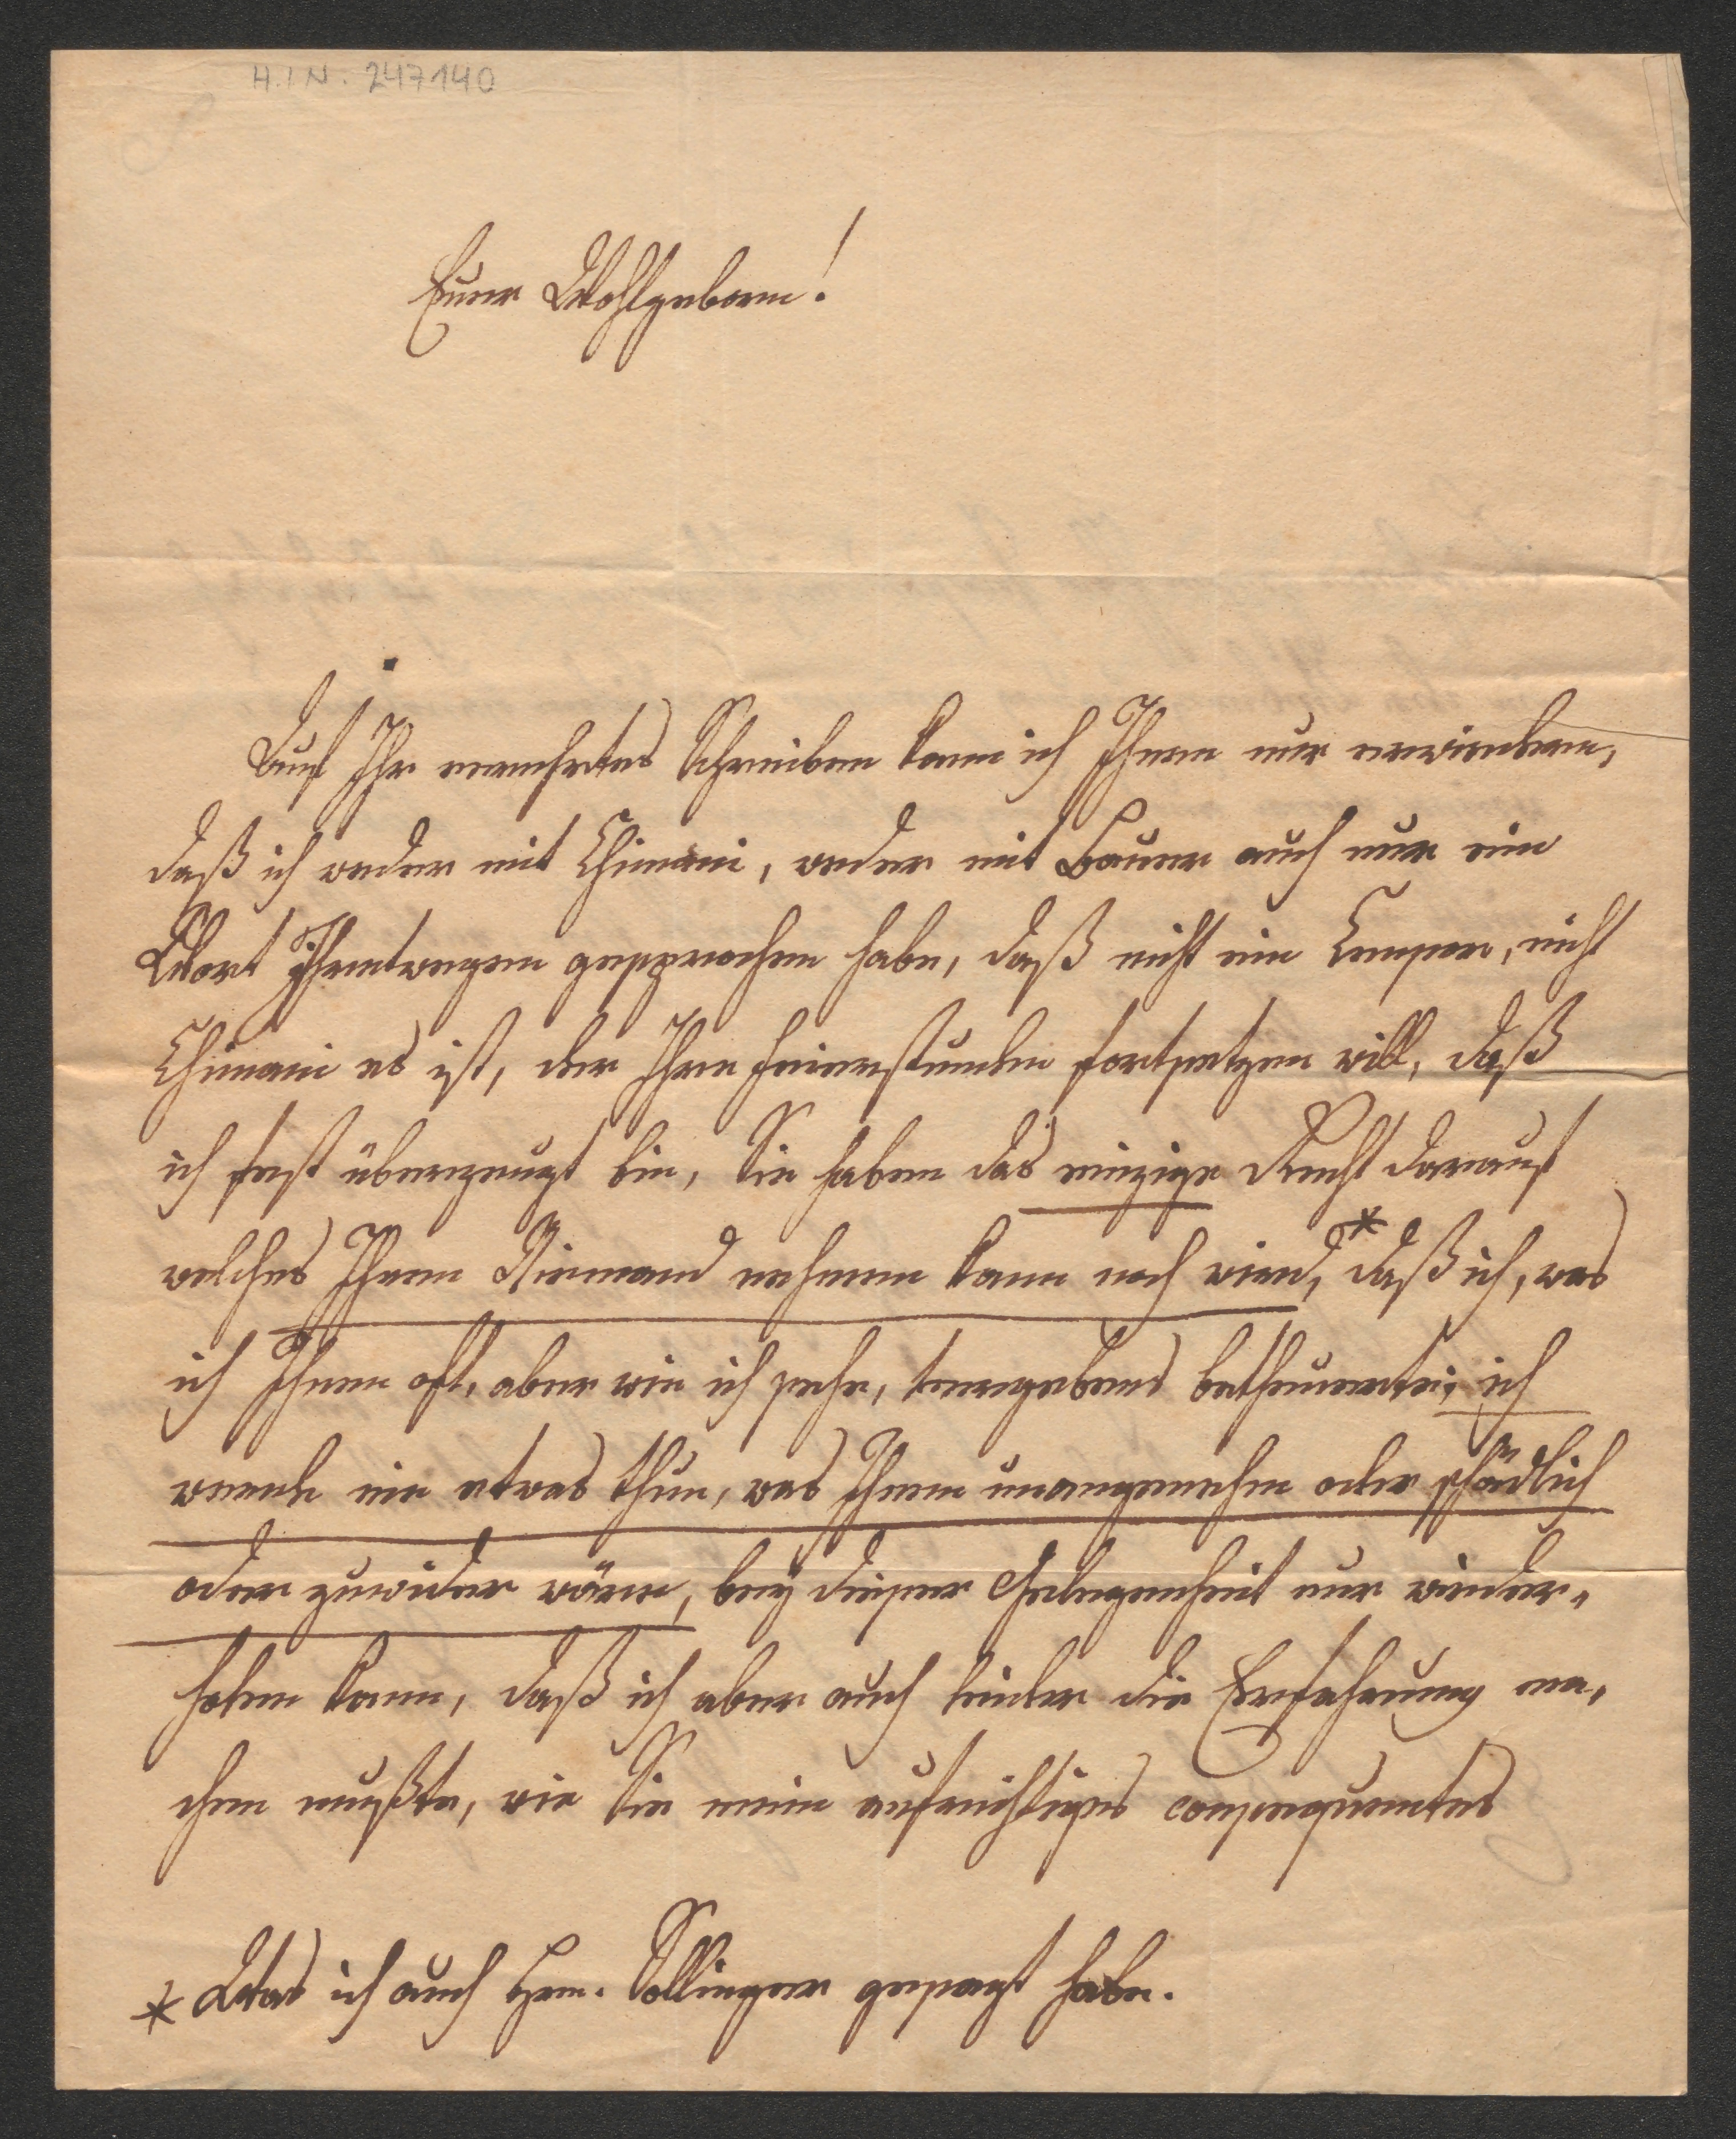 H.I.N. 247140
Euer Wohlgeborn!
Auf Ihr verehrtes Schreiben kann ich Ihnen nur erwiedern,
daß ich weder mit Chimani, weder mit Bauer auch nur ein
Wort Ihretwegen gesprochen habe, daß nicht ein Censor, nicht
Chimani es ist, der Ihre Feierstunden fortsetzen will, daß
ich fest überzeugt bin, Sie haben das einzige Recht darauf
welches Ihnen Niemand nehmen kann noch wird,* daß ich, was
ich Ihnen oft, aber wie ich sehe, vergebens betheuerte: ich
werde nie etwas thun, was Ihnen unangenehm oder schädlich
oder zuwider wäre, bey dieser Gelegenheit nur wieder-
holen kann, daß ich aber auch leider die Erfahrung ma-
chen mußte, wie Sie mein aufrichtiges consequentes
* Was ich auch Hrn. Sollinger gesagt habe.